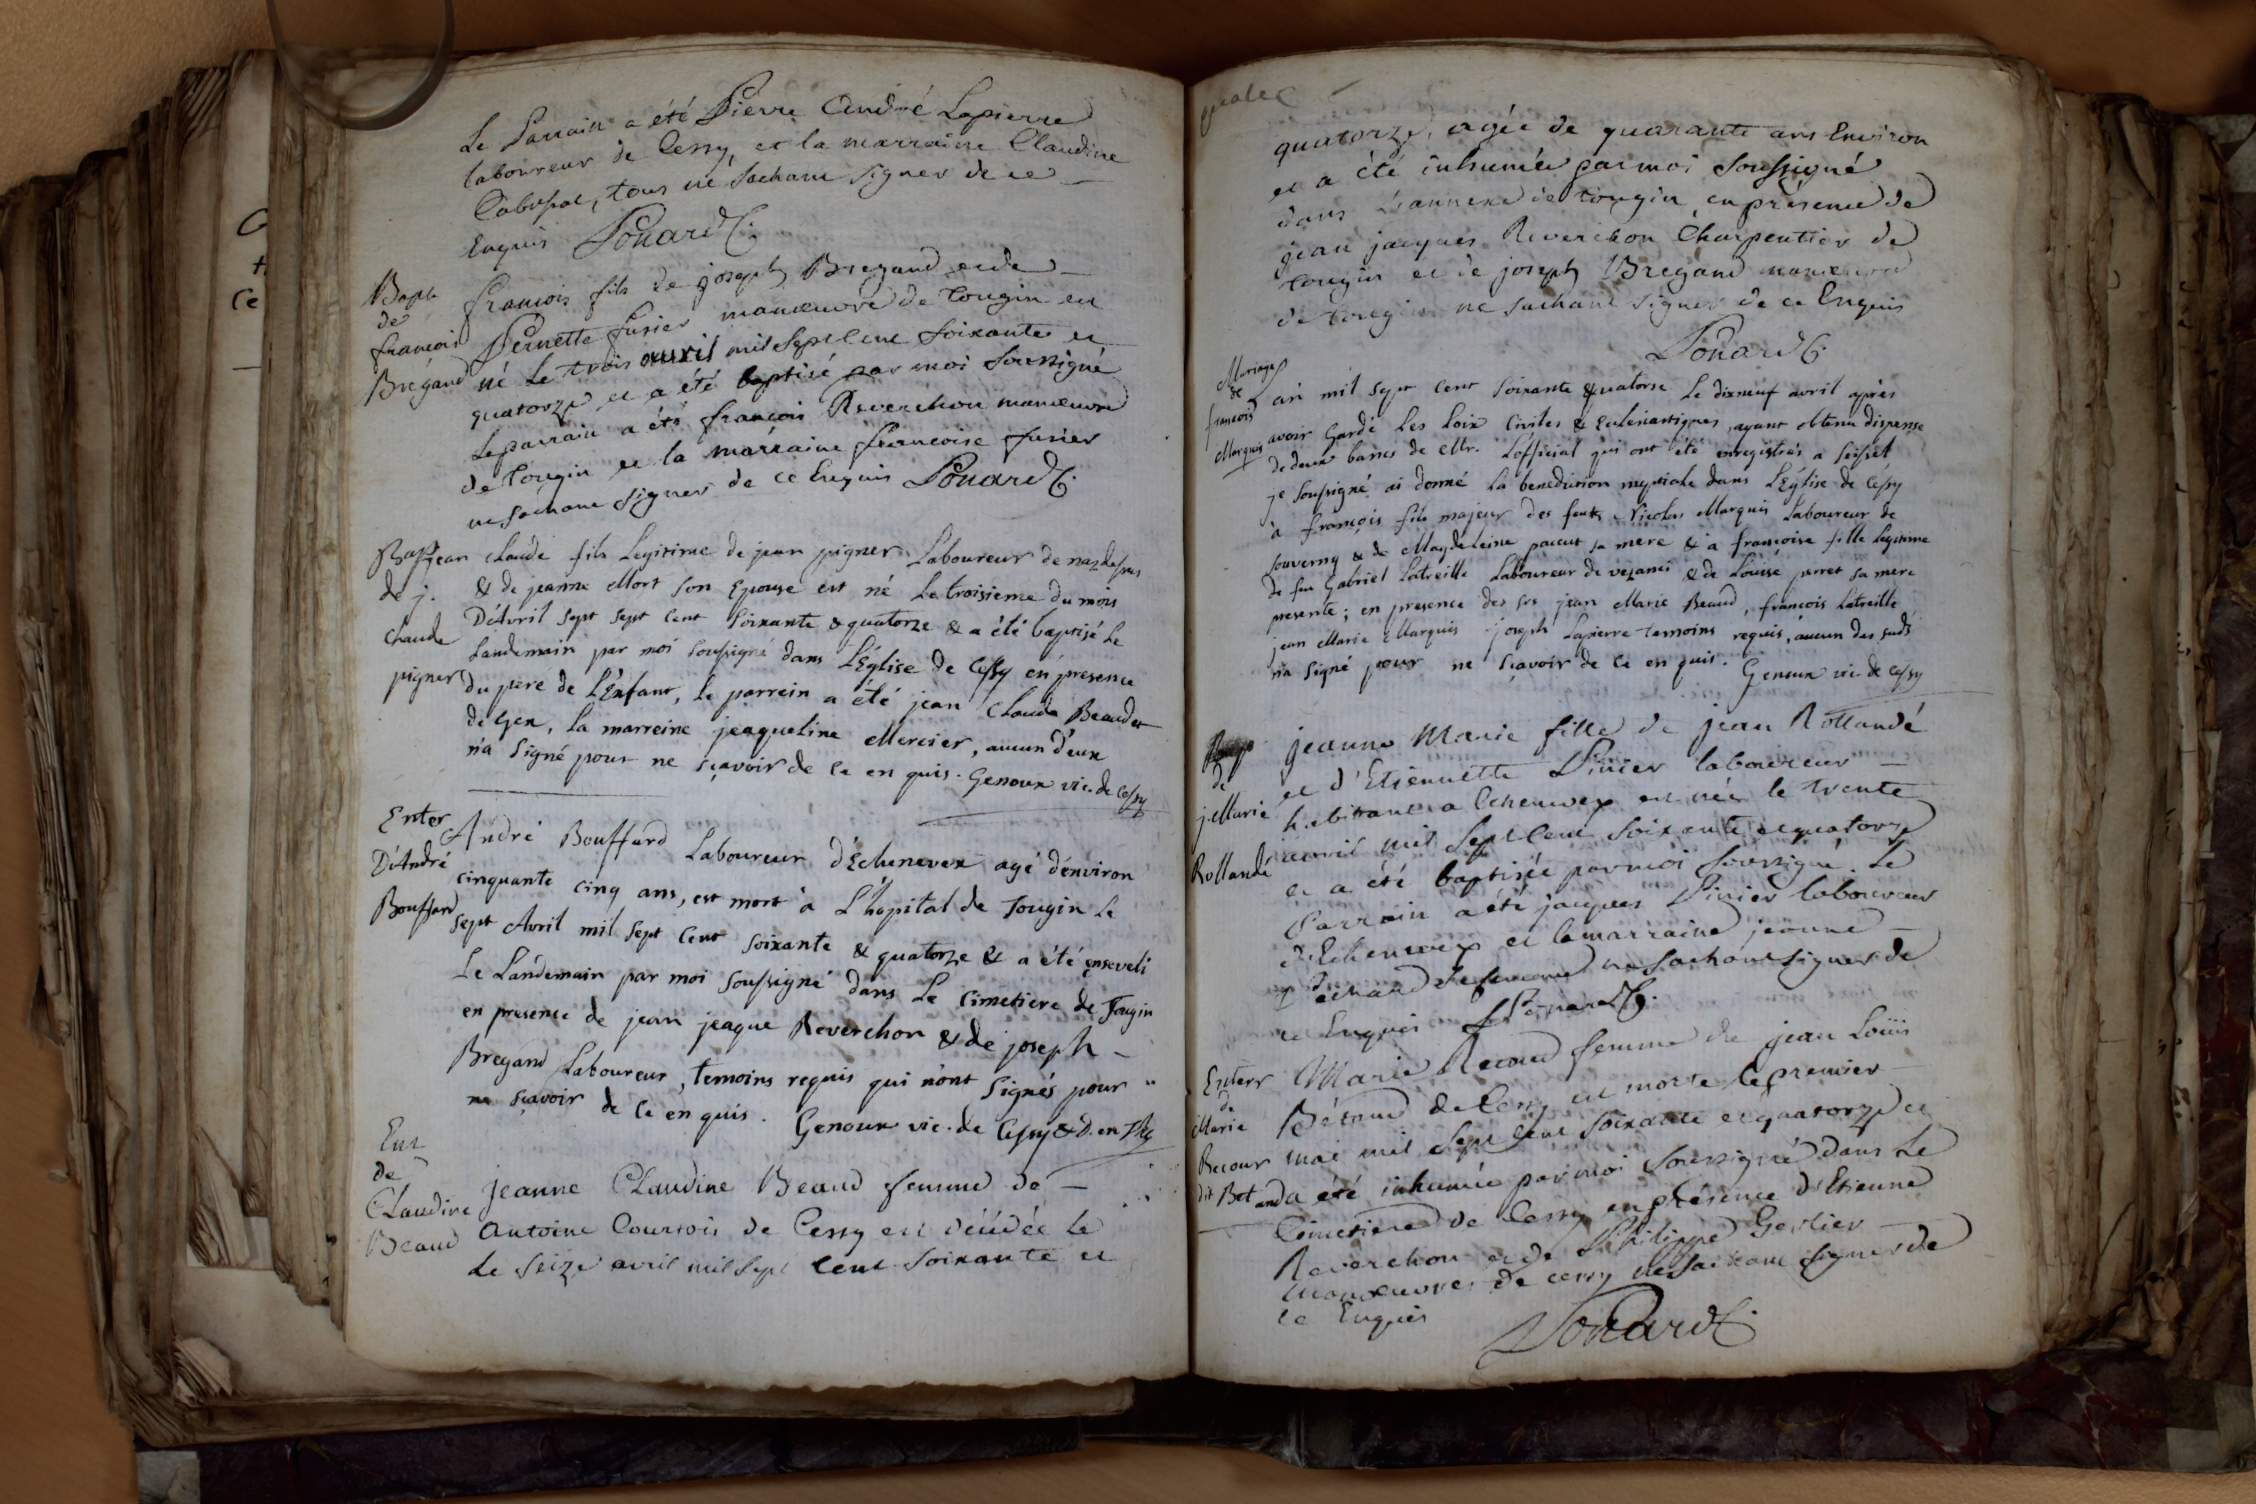 Le Parrain a été Pierre André Lapierre
laboureur de Cessy, et la marraine Claudine
tous ne sachant signer de ce
Enquis Ponard C.
Bapt
de
francois
Brégand
francois fils de joseph Bregand et de
Pernette fusier manœuvre de tougin est
né le trois avril mil sept cent soixante et
quatorze et a été baptisé par moi soussigné
Le parrain a été francois Reverchon manœuvre
de tougin et la marraine francoise fusier
ne sachant signer de ce Enquis Ponard C.
Bapt
de j.
Claude
pigner
jean claude fils Legitime de jean pigner Laboureur de
& de jeanne Mort son Epouse est né Le troisieme du mois
D'Avril sept sept cent soixante & quatorze & a été baptisé Le
Landemain par moi soussigné dans L'Église de Cessy en presence
du pere de L'Enfant, le parrein a été jean Claude Beaudet
de Gex, la marreine jeaqueline Mercier, aucun d'eux
n'a signé pour ne sçavoir de ce en quis. Genoux vic. de Cessy
Enter
D'André
Bouffard
André Bouffard Laboureur d'Echenevex agé d'environ
cinquante cinq ans, est mort à L'hopital de Tougin Le
sept Avril mil sept cent soixante & quatorze & a été enseveli
Le Landemain par moi soussigné dans Le cimetiere de Tougin
en presence de jean jeaque Reverchon & de joseph
Bregand Laboureur, temoins requis qui n'ont signés pour
ne sçavoir de ce en quis. Genoux vic. de Cessy & D. en Th
Ent
de
Claudine
Beaud
jeanne Claudine Beaud femme de
Antoine Courtois de Cessy est décédée le
le seize avril mil sept cent soixante et
quatorze, agée de quarante ans Environ
et a été inhumée par moi soussigné
dans L'annexe de tougin, en présence de
jean jacques Reverchon Charpentier de
tougin et de joseph Bregand manœuvre
de tougin ne sachant signer de ce Enquis
Ponard C.
Mariage
de
francois
Marquis
an mil sept cent soixante & quatorse Le dixneuf avril après
avoir Gardé Les Loix Civiles & Eclesiastiques, ayant obtenu dispense
de deux bancs de Mr. L'official qui ont été enregistrés a
je soussigné ai donné La benediction nuptiale dans L'Église de Cessy
à François fils majeur des feuts Nicolas Marquis Laboureur de
souverny & de Magdeleine paccut sa mere & à francoise fille Legitime
de feu Gabriel Latreille Laboureur de vezanci & de Louise perret sa mere
presente; en presence des srs jean Marie Beaud, francois Latreille
jean Marie Marquis joseph Lapierre temoins requis, aucun des suds
n'a signé pour ne sçavoir de ce en quis. Genoux vic. de Cessy
Bapt
de
j. Marie
Rollandé
jeanne Marie fille de jean Rollandé
et d'Etiennette Pinier laboureur
habitant a Echenevex est née le trente
avril mil sept cent soixante et quatorze
et a été baptisée par moi soussigné. Le
Parrain a été jacques Pinier laboureur
d'Echenevex et la marraine jeanne
sa femme ne sachant signer de
ce Enquis Ponard C.
Enterr
de
Marie
Recour
dit Betand
Marie Recour femme de jean Louis
Bétand de Cessy est morte le premier
mai mil sept cent soixante et quatorze et
a été inhumée par moi soussigné dans le
Cimetiere de Cessy en présence d'Etienne
Reverchon et de Philippe Gertier
manœuvres de cessy ne sachant signer de
ce Enquis
Ponard C.